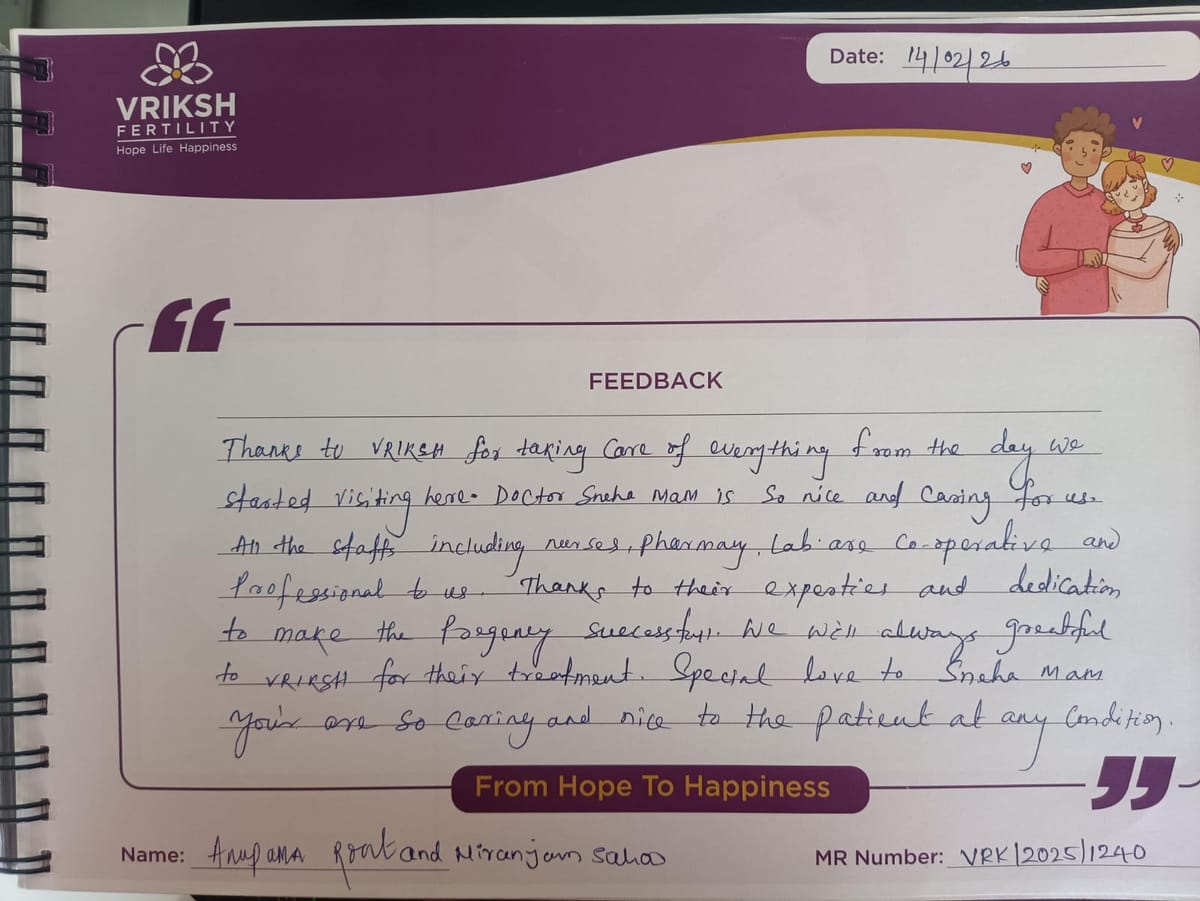 VRIKSH
FERTILITY
Hope Life Happiness
Date: 14/02/26
FEEDBACK
Thanks to VRIKSH for taking Care of everything from the day we
started visiting here. Doctor Sneha Mam is So nice and Caring for us.
All the staffs including nurses, Pharmay, Lab are Co-operative and
Professional to us. Thanks to their experties and dedication
to make the Pregency successful. We will always greatful
to VRIKSH for their treatment. Special love to Sneha Mam
Your are So Caring and nice to the patient at any Condition.
From Hope To Happiness
Name: Anupama Rout and Niranjan Sahoo
MR Number: VRK/2025/1240